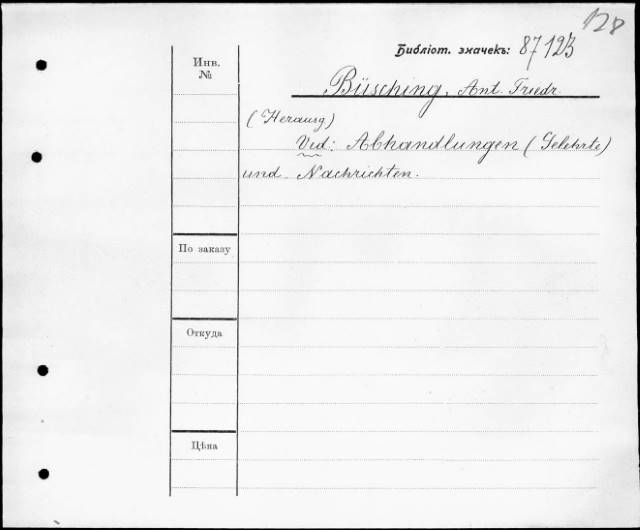 128
Библіот. значекъ: 87123
Инв.
№
Büsching, Ant. Friedr.
(Herausg)
Vid: Abhandlungen (Gelehrte)
und Nachrichten.
По заказу
Откуда
Цѣна